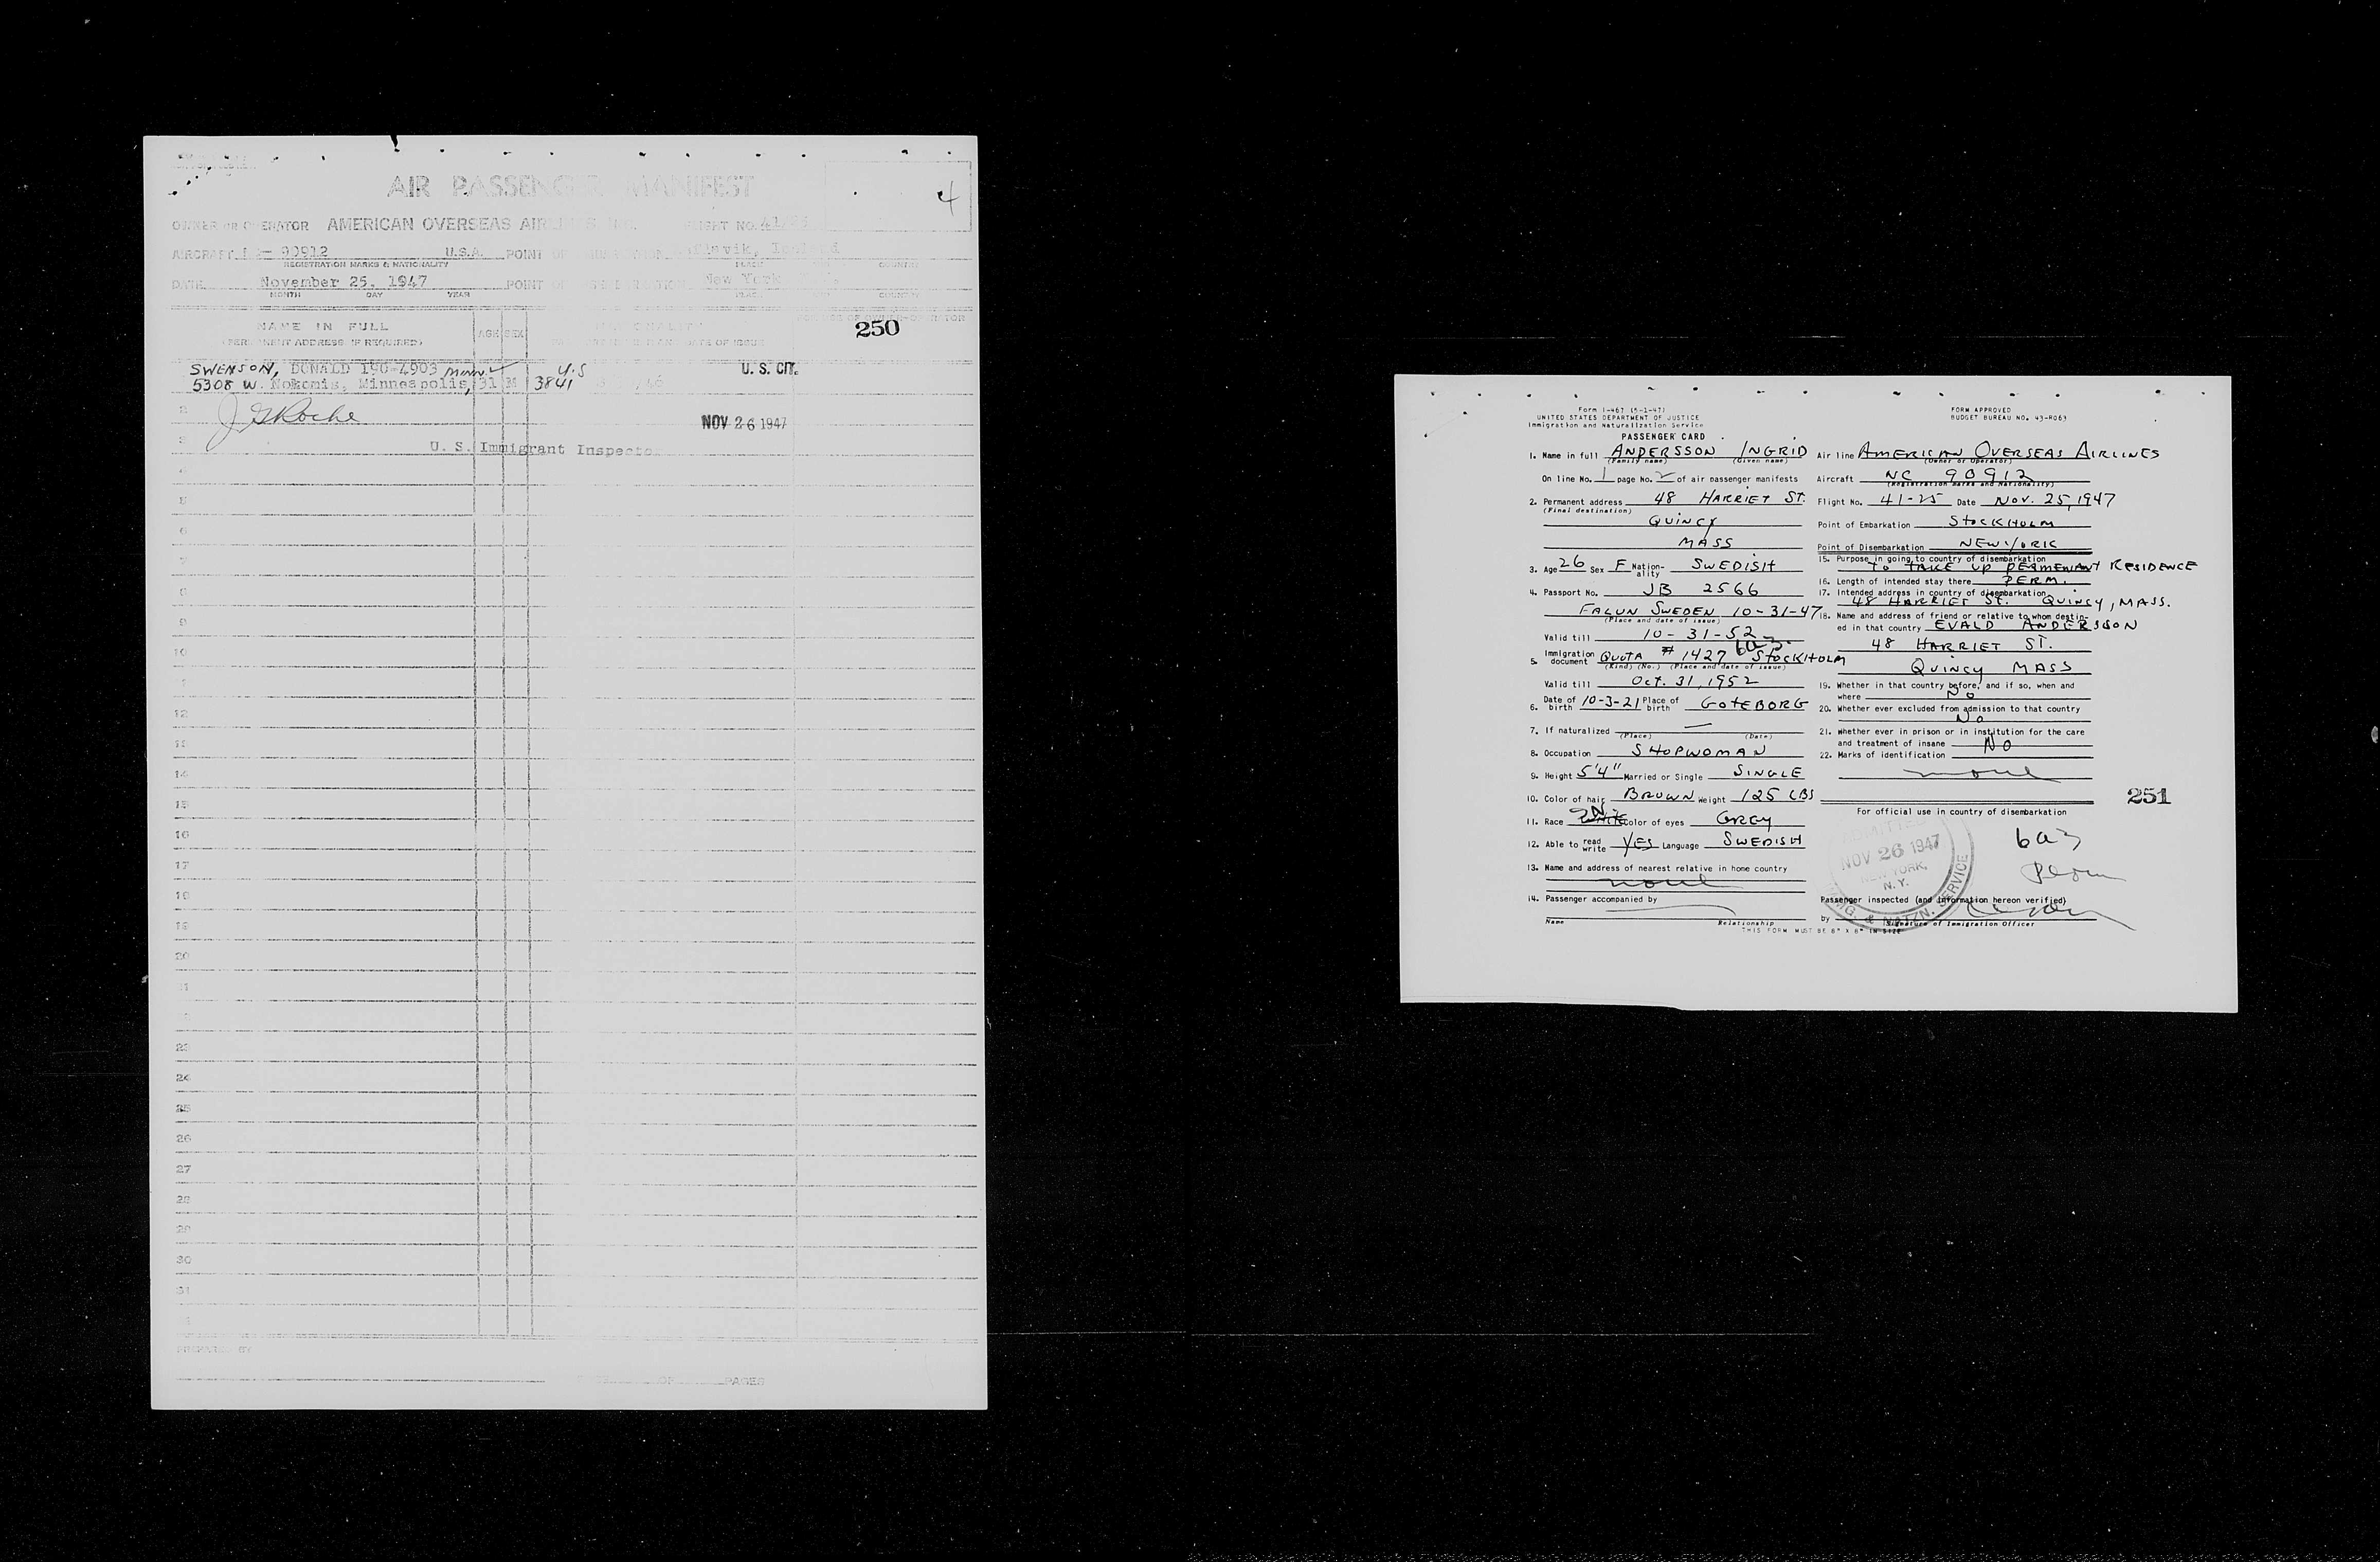 AIR PASSENGER MANIFEST
4
OWNER OR OPERATOR AMERICAN OVERSEAS AIRLINES INC. FLIGHT NO.
AIRCRAFT 90912 U.S.A. POINT OF
REGISTRATION MARKS & NATIONALITY PLACE COUNTRY
DATE November 25, 1947 POINT OF New York
MONTH DAY YEAR COUNTRY
NAME IN FULL
(PERMANENT ADDRESS IF REQUIRED)
AGE SEX
DATE OF ISSUE
250
SWENSON, DONALD 190-4903 Minn U.S U. S. CIT.
5308 W. Nokomis, Minneapolis, 31 M 3841
2
J G Roche
NOV 26 1947
3
U. S. Immigrant Inspector
4
5
6
7
8
9
10
12
14
15
16
17
18
19
20
21
23
24
25
26
27
28
29
30
31
OF PAGES
Form I-467 (5-1-47)
UNITED STATES DEPARTMENT OF JUSTICE
Immigration and Naturalization Service
PASSENGER CARD
FORM APPROVED
BUDGET BUREAU NO. 43-R063
1. Name in full ANDERSSON INGRID
(Family name) (Given name)
On line No. 1 page No. 2 of air passenger manifests
2. Permanent address 48 HARRIET ST.
(Final destination)
QUINCY
MASS
3. Age 26 Sex F Nation-ality SWEDISH
4. Passport No. JB 2566
FALUN SWEDEN 10-31-47
(Place and date of issue)
Valid till 10-31-52
5. Immigration document QUOTA # 1427 STOCKHOLM
(Kind) (No.) (Place and date of issue)
Valid till Oct. 31, 1952
6. Date of birth 10-3-21 Place of birth GOTEBORG
7. If naturalized —
(Place) (Date)
8. Occupation SHOPWOMAN
9. Height 5'4" Married or Single SINGLE
10. Color of hair BROWN Weight 125 LBS
11. Race Color of eyes GREY
12. Able to read write YES Language SWEDISH
13. Name and address of nearest relative in home country
none
14. Passenger accompanied by
Name Relationship
THIS FORM MUST BE 8" X 8" IN SIZE
Air line AMERICAN OVERSEAS AIRLINES
(Owner or Operator)
Aircraft NC 90912
(Registration marks and Nationality)
Flight No. 41-25 Date NOV. 25, 1947
Point of Embarkation STOCKHOLM
Point of Disembarkation NEW YORK
15. Purpose in going to country of disembarkation
TO TAKE UP PERMENANT RESIDENCE
16. Length of intended stay there PERM.
17. Intended address in country of disembarkation
48 HARRIET ST. QUINCY, MASS.
18. Name and address of friend or relative to whom destin-
ed in that country EVALD ANDERSSON
48 HARRIET ST.
QUINCY MASS
19. Whether in that country before, and if so, when and
where No
20. Whether ever excluded from admission to that country
No
21. Whether ever in prison or in institution for the care
and treatment of insane NO
22. Marks of identification
none
251
For official use in country of disembarkation
6a3
Perm
ADMITTED
NOV 26 1947
NEW YORK,
N.Y.
IMMIG. & NATZN. SERVICE
Passenger inspected (and information hereon verified)
by
Signature of Immigration Officer